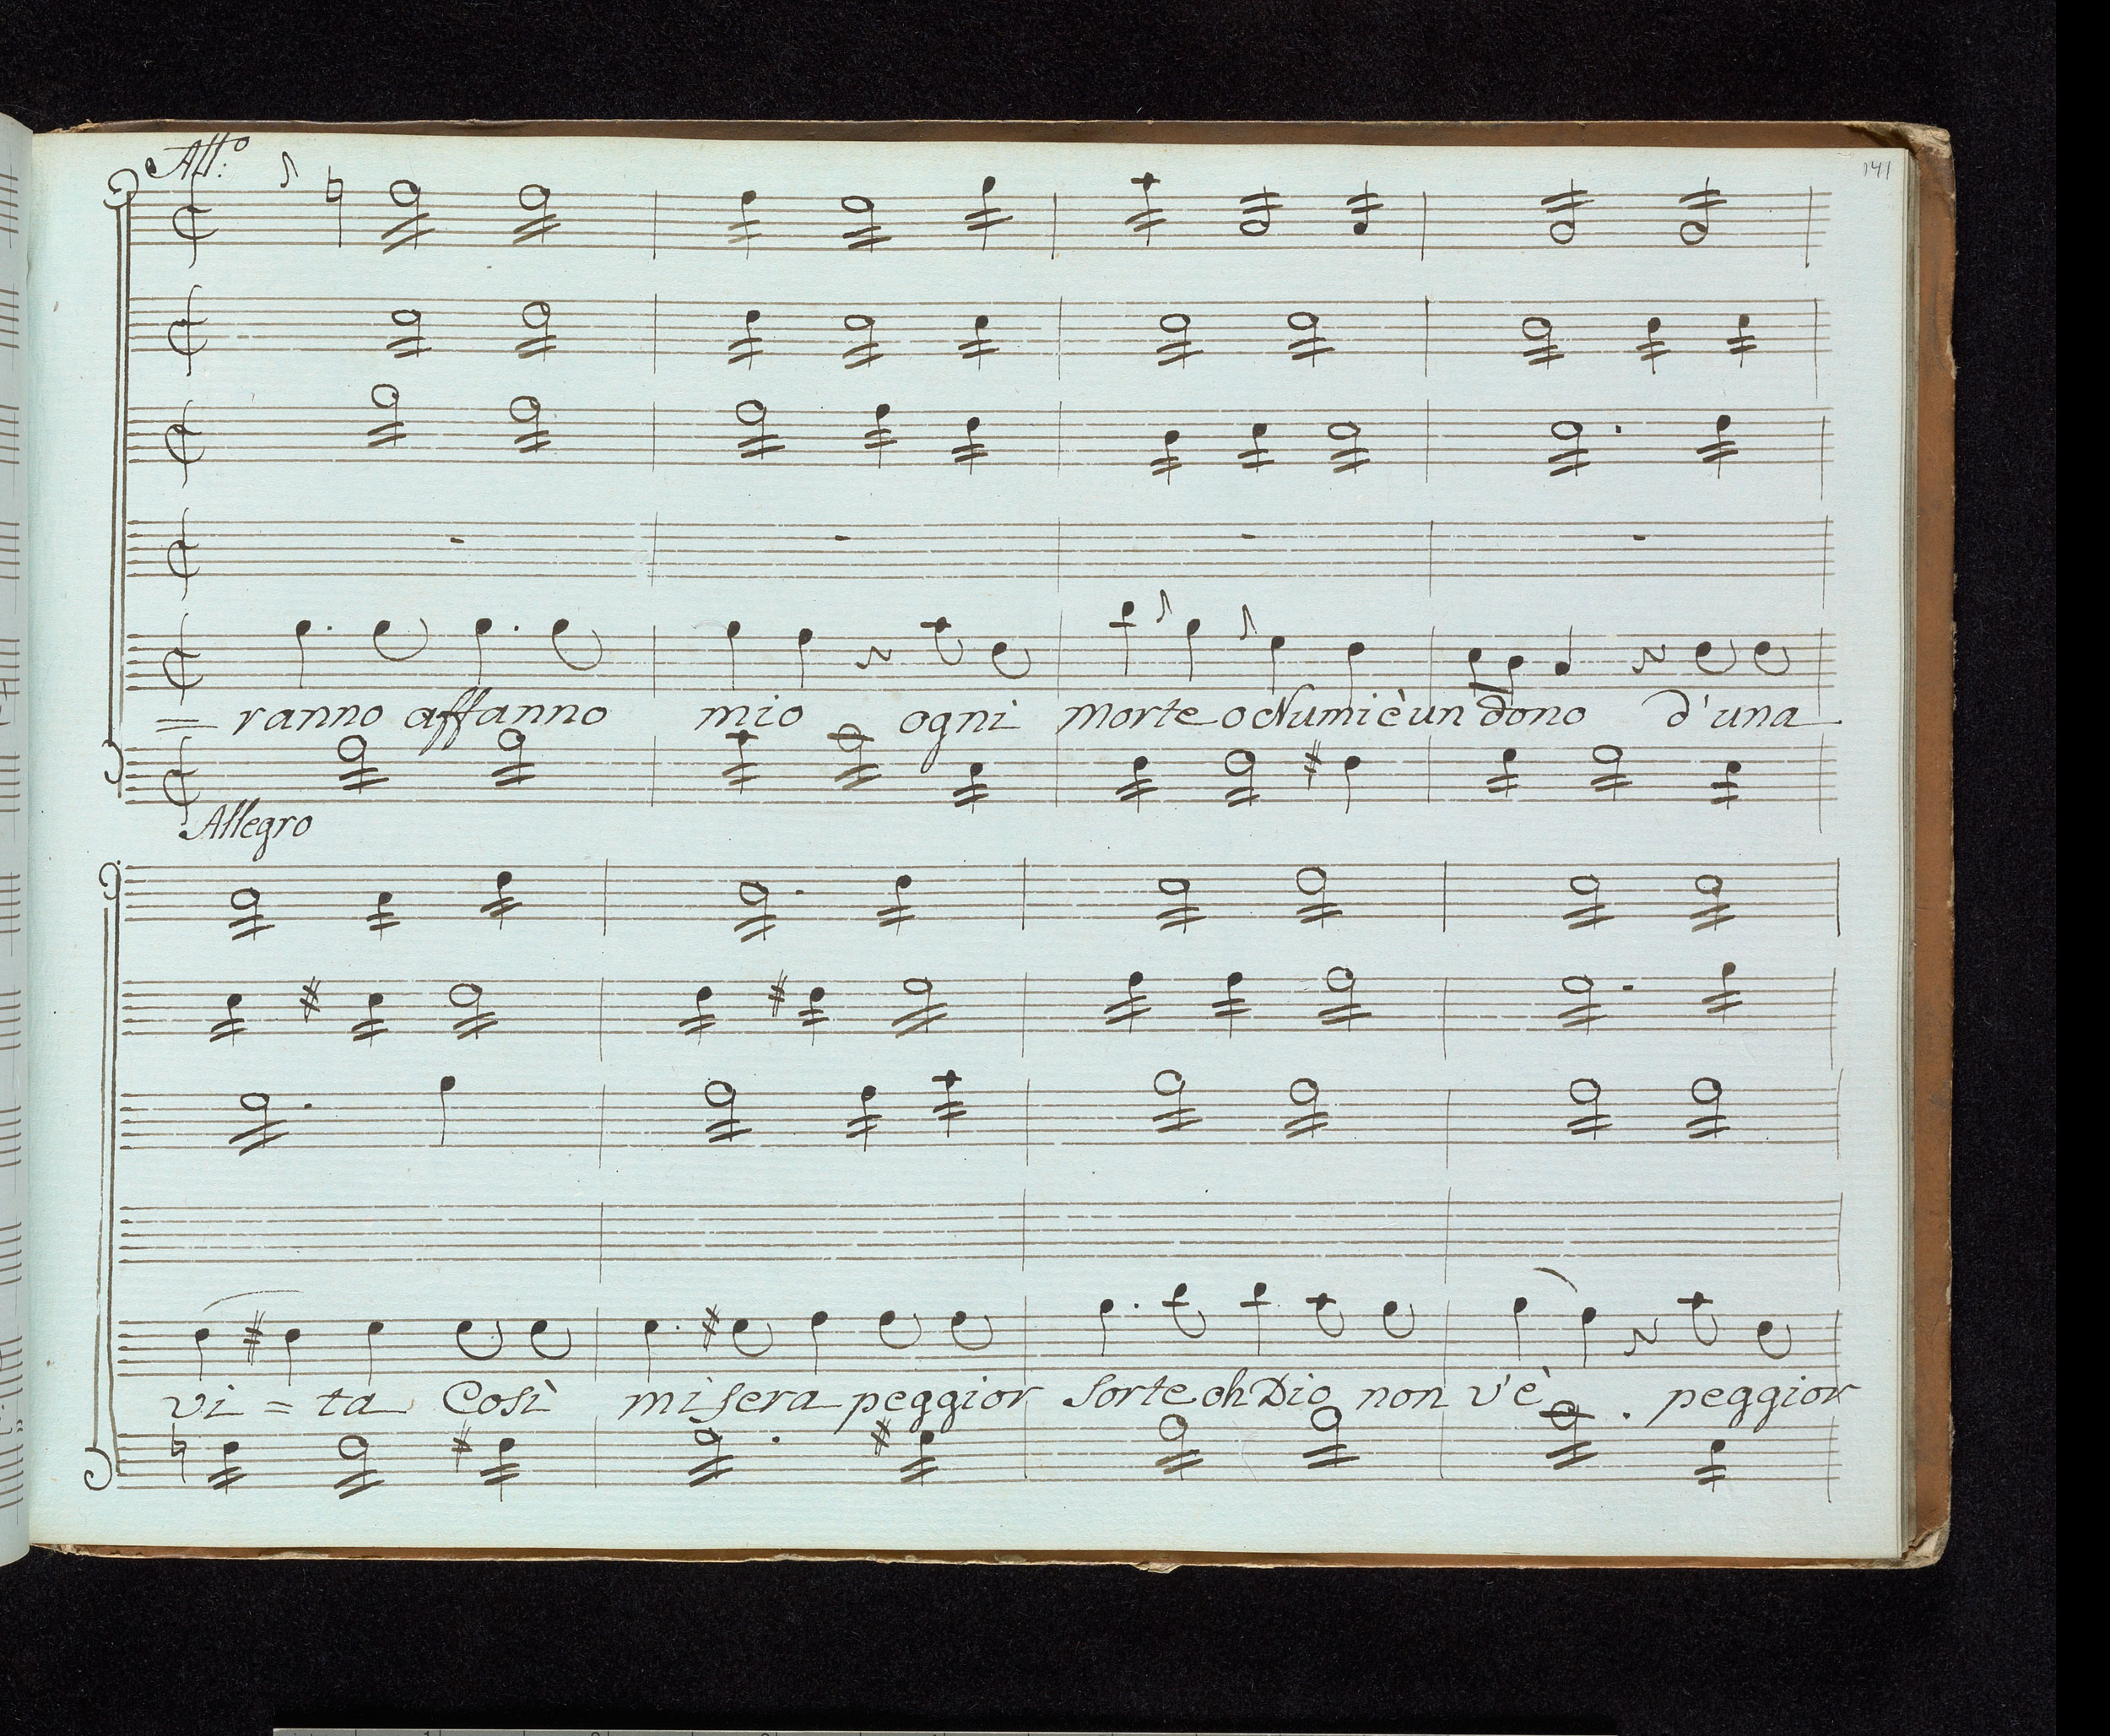 141
All:o
= ranno affanno mio ogni morte o Numi è un dono d'una
Allegro
vi = ta Così misera peggior sorte oh Dio non v'è peggior